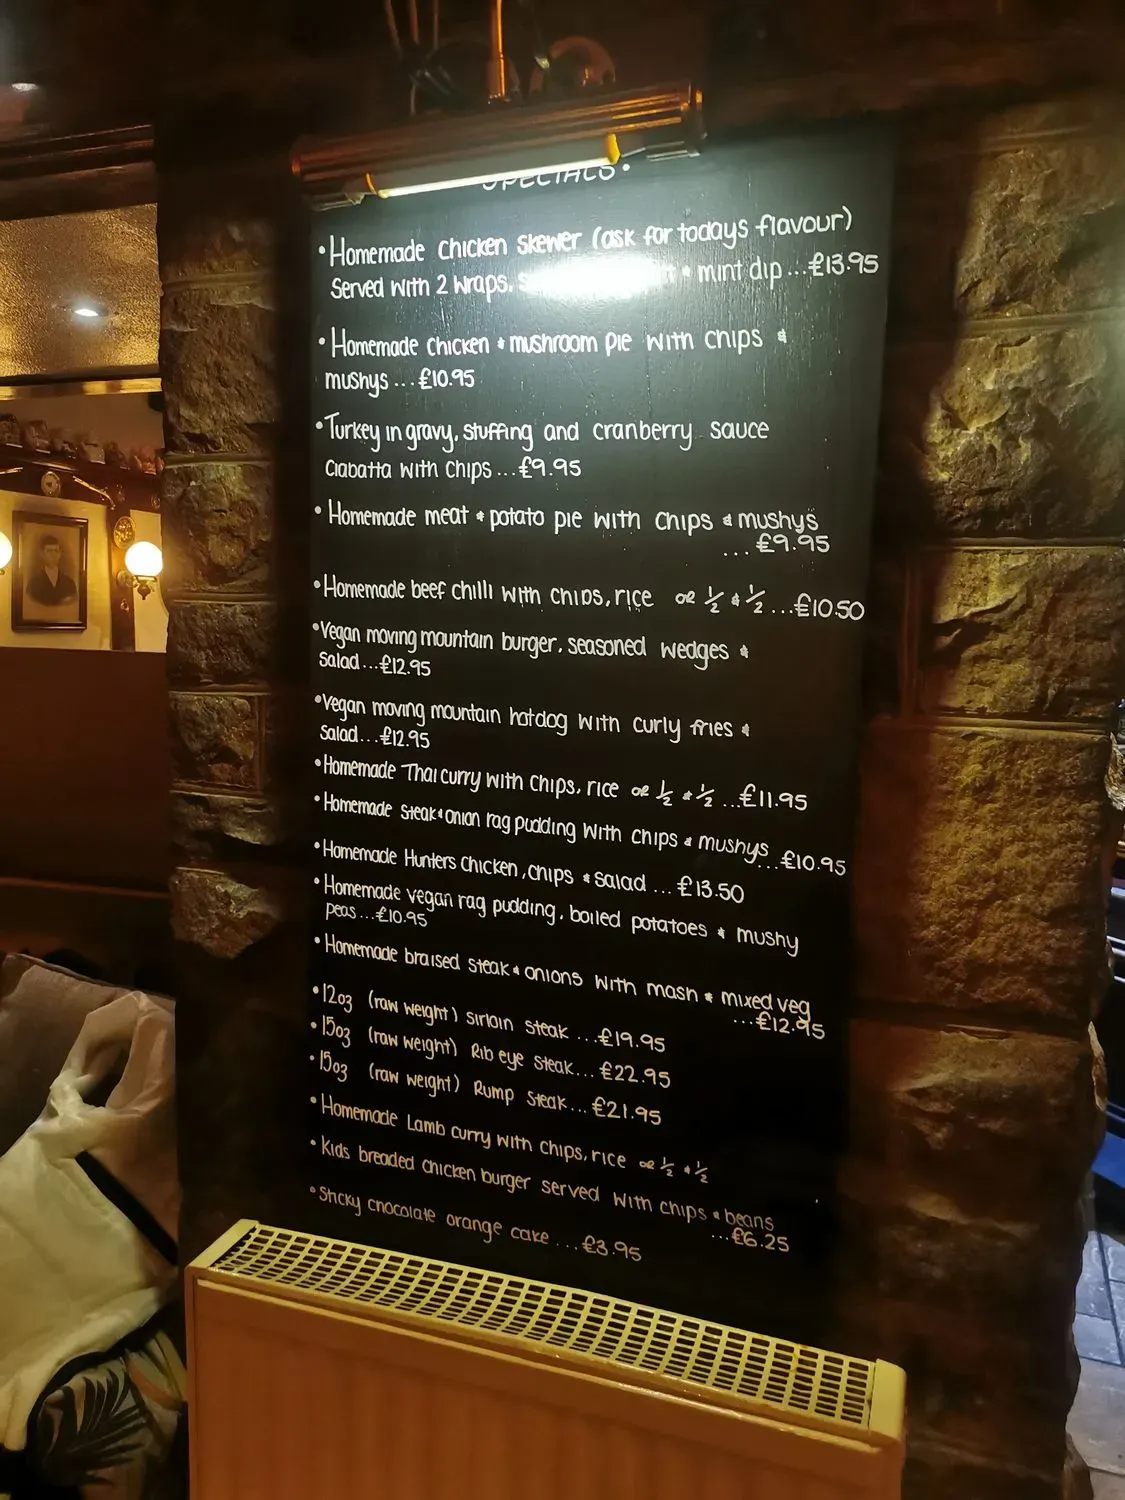 SPECIALS •
• Homemade chicken skewer (ask for todays flavour)
Served with 2 wraps, mint dip...£13.95
• Homemade chicken & mushroom pie with chips &
mushys ...£10.95
• Turkey in gravy, stuffing and cranberry sauce
Ciabatta with chips ...£9.95
• Homemade meat & potato pie with chips & mushys
...£9.95
• Homemade beef chilli with chips, rice or ½ & ½ ...£10.50
• Vegan moving mountain burger, seasoned wedges &
Salad...£12.95
• Vegan moving mountain hotdog with curly fries &
Salad...£12.95
• Homemade Thai curry with chips, rice or ½ & ½ ...£11.95
• Homemade steak & onion rag pudding with chips & mushys
...£10.95
• Homemade Hunters chicken, chips & salad ...£13.50
• Homemade vegan rag pudding, boiled potatoes & mushy
peas...£10.95
• Homemade braised steak & onions with mash & mixed veg
...£12.95
• 12oz (raw weight) sirloin steak ...£19.95
• 15oz (raw weight) Rib eye steak...£22.95
• 15oz (raw weight) Rump steak...£21.95
• Homemade Lamb curry with chips, rice or ½ & ½
• Kids breaded chicken burger served with chips & beans
...£6.25
• Sticky chocolate orange cake ...£3.95